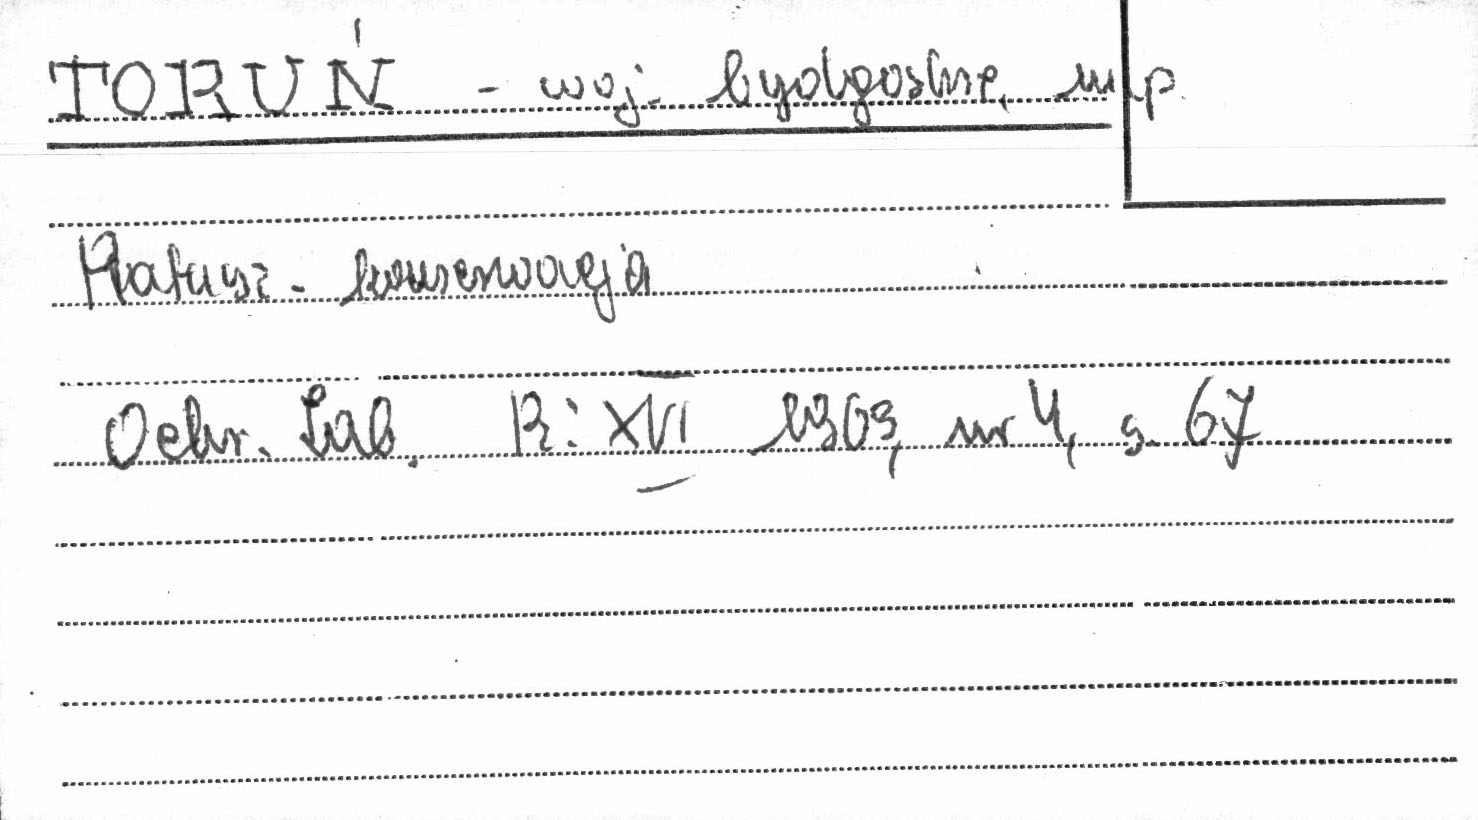 TORUŃ - woj. bydgoskie, m p.
Ratusz - konserwacja
Ochr. Zab. R: XVI 1963, nr 4, s. 67